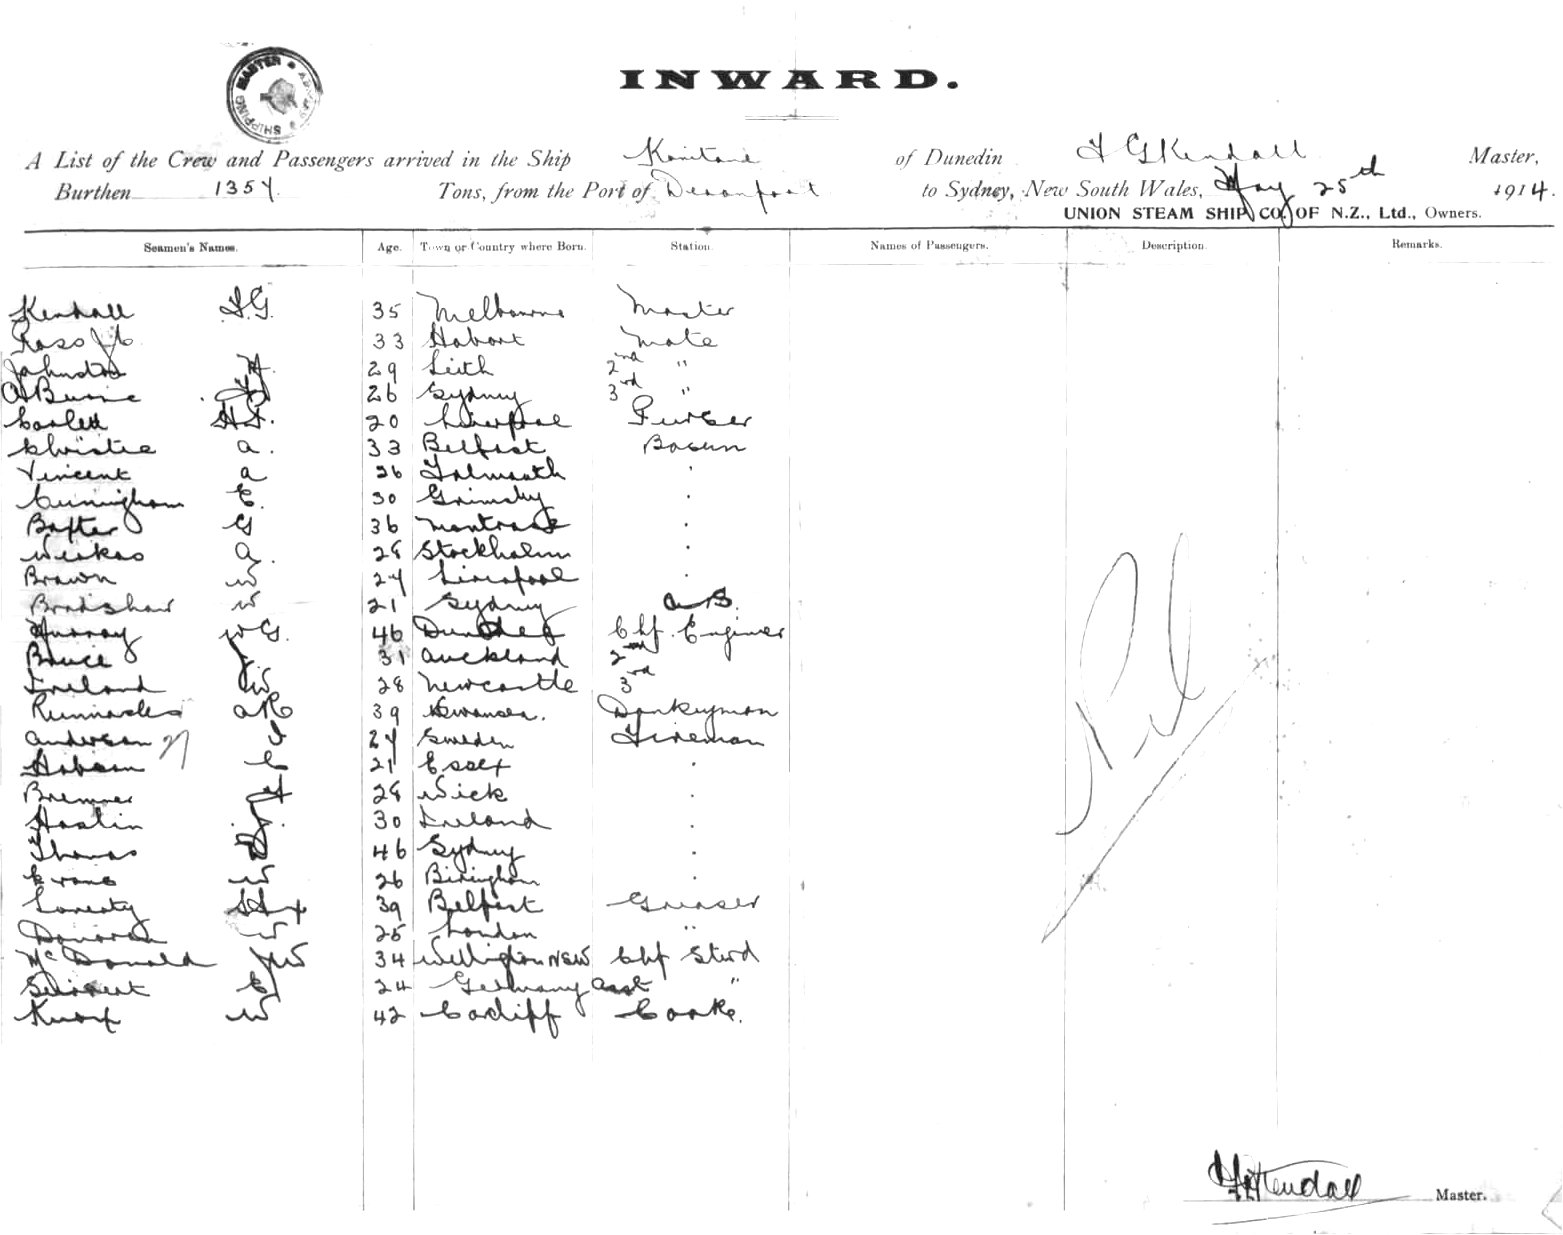 SHIPPING MASTER
INWARD.
A List of the Crew and Passengers arrived in the Ship Kanitane of Dunedin F G Kendall Master,
Burthen 1354 Tons, from the Port of Devonport to Sydney, New South Wales, May 25th 1914.
UNION STEAM SHIP CO. OF N.Z., Ltd., Owners.
Seamen's Names. Age. Town or Country where Born. Station. Names of Passengers. Description. Remarks.
Kendall F.G. 35 Melbourne Master
Ross 33 Hobart Mate
Johnston 29 Leith 2nd "
26 Sydney 3rd "
H. 20 Liverpool Purser
Christie A. 33 Belfast Bosun
Vincent A 26 Falmouth
Cunningham E. 30 Grimsby
Baxter G 36 Montrose
A. 28 Stockholm
Brown W 24 Liverpool
Bradshaw W 21 Sydney A.B.
Murray W G. 46 Dundee Chf. Engineer
Bruce J 31 Auckland 2nd
Ireland W 28 Newcastle 3rd
A 39 Swansea. Donkeyman
Anderson 24 Sweden Fireman
Hobson C 21 Essex
Bremner 28 Wick
J. 30 Ireland
Thomas D 46 Sydney
Evans W 26 Biringham
39 Belfast Greaser
Donovan W 25 London "
McDonald JW 34 Wellington NSW Chf Stwd
E 24 Germany Asst "
Knox W 42 Cardiff Cooke.
Nil
Kendall Master.